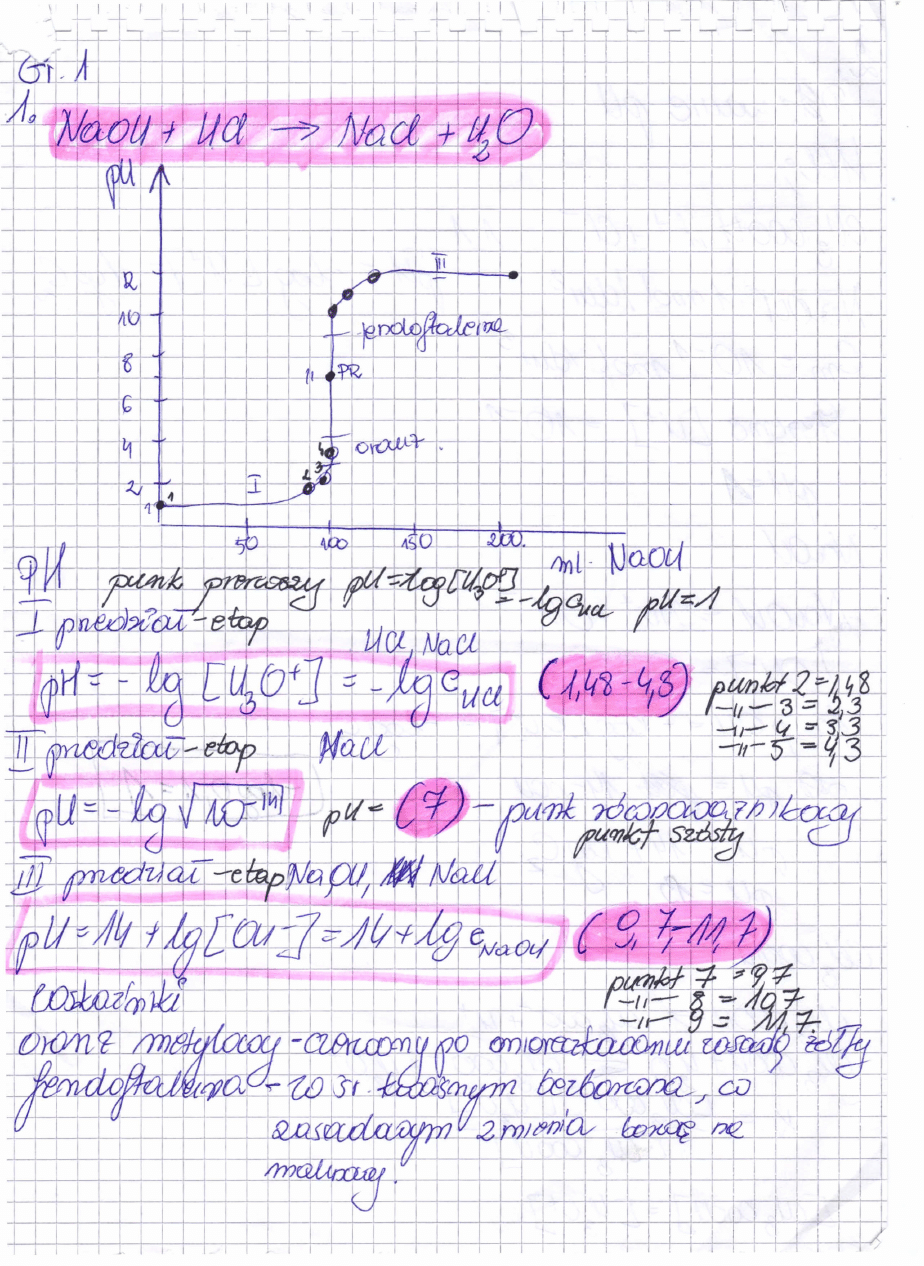 Gr. 1
1. NaOH + HCl → NaCl + H₂O
pH
12
10
8
6
4
2
1
1
I
2
3
4
II
PR
III
fenoloftaleina
oranż.
50 100 150 200.
ml. NaOH
PH punk pierwszy pH=-log[H₃O⁺]
= -lg cHCl pH=1
I przedział-etap
HCl, NaCl
pH = - lg [H₃O⁺] = - lg cHCl (1,48-4,3)
punkt 2 = 1,48
-„- 3 = 2,3
-„- 4 = 3,3
-„- 5 = 4,3
II przedział-etap NaCl
pH = - lg √10⁻¹⁴ pH = (7) - punk równoważnikowy
punkt szósty
III przedział-etap NaOH, NaCl
pH = 14 + lg [OH⁻] = 14 + lg cNaOH (9,7-11,7)
punkt 7 = 9,7
-„- 8 = 10,7
-„- 9 = 11,7.
wskaźniki
oranż metylowy - czerwony po zmiareczkowaniu zasadą żółty
fenoloftaleina - w śr. kwaśnym bezbarwna, w
zasadowym zmienia barwę na
malinowy.